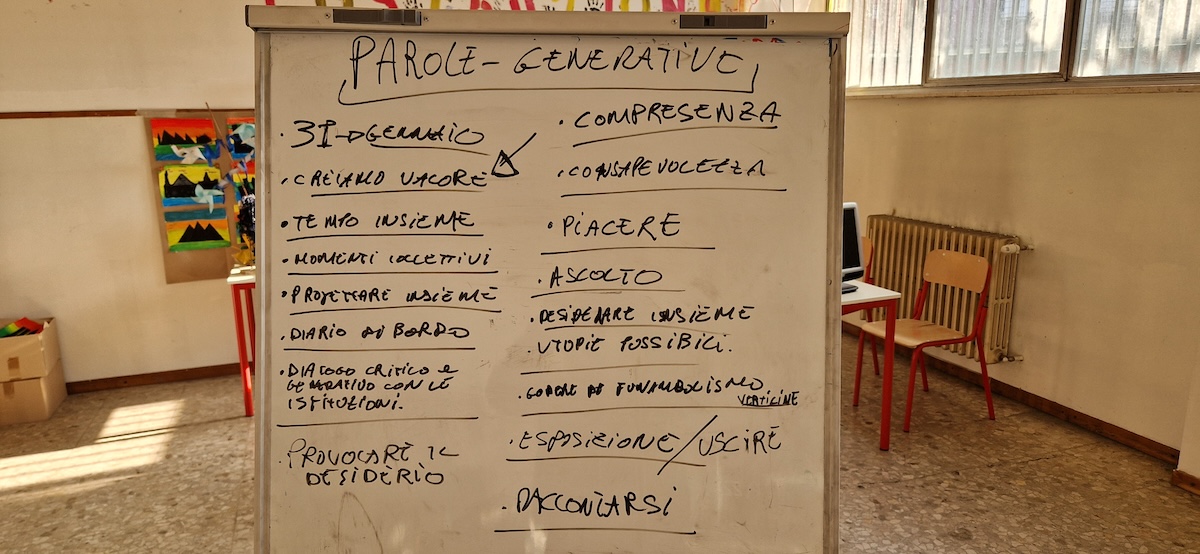 PAROLE - GENERATIVE
· 31 → GENNAIO
· CREIAMO VALORE
· TEMPO INSIEME
· MOMENTI COLLETTIVI
· PROGETTARE INSIEME
· DIARIO DI BORDO
· DIALOGO CRITICO E
GENERATIVO CON LE
ISTITUZIONI.
· PROVOCARE IL
DESIDERIO
· COMPRESENZA
· CONSAPEVOLEZZA
· PIACERE
· ASCOLTO
· DESIDERARE INSIEME
· UTOPIE POSSIBILI.
· DI FUNAMBOLISMO
VERTIGINE
· ESPOSIZIONE / USCIRE
· RACCONTARSI